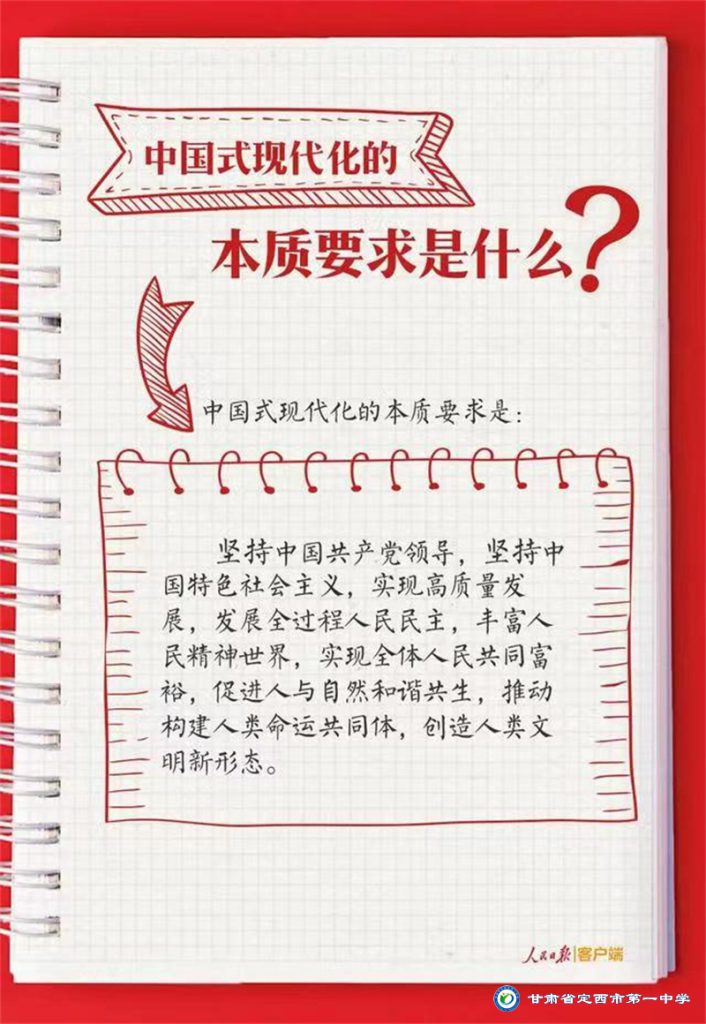 中国式现代化的
本质要求是什么?
中国式现代化的本质要求是:
坚持中国共产党领导，坚持中
国特色社会主义，实现高质量发
展，发展全过程人民民主，丰富人
民精神世界，实现全体人民共同富
裕，促进人与自然和谐共生，推动
构建人类命运共同体，创造人类文
明新形态。
人民日报|客户端
甘肃省定西市第一中学